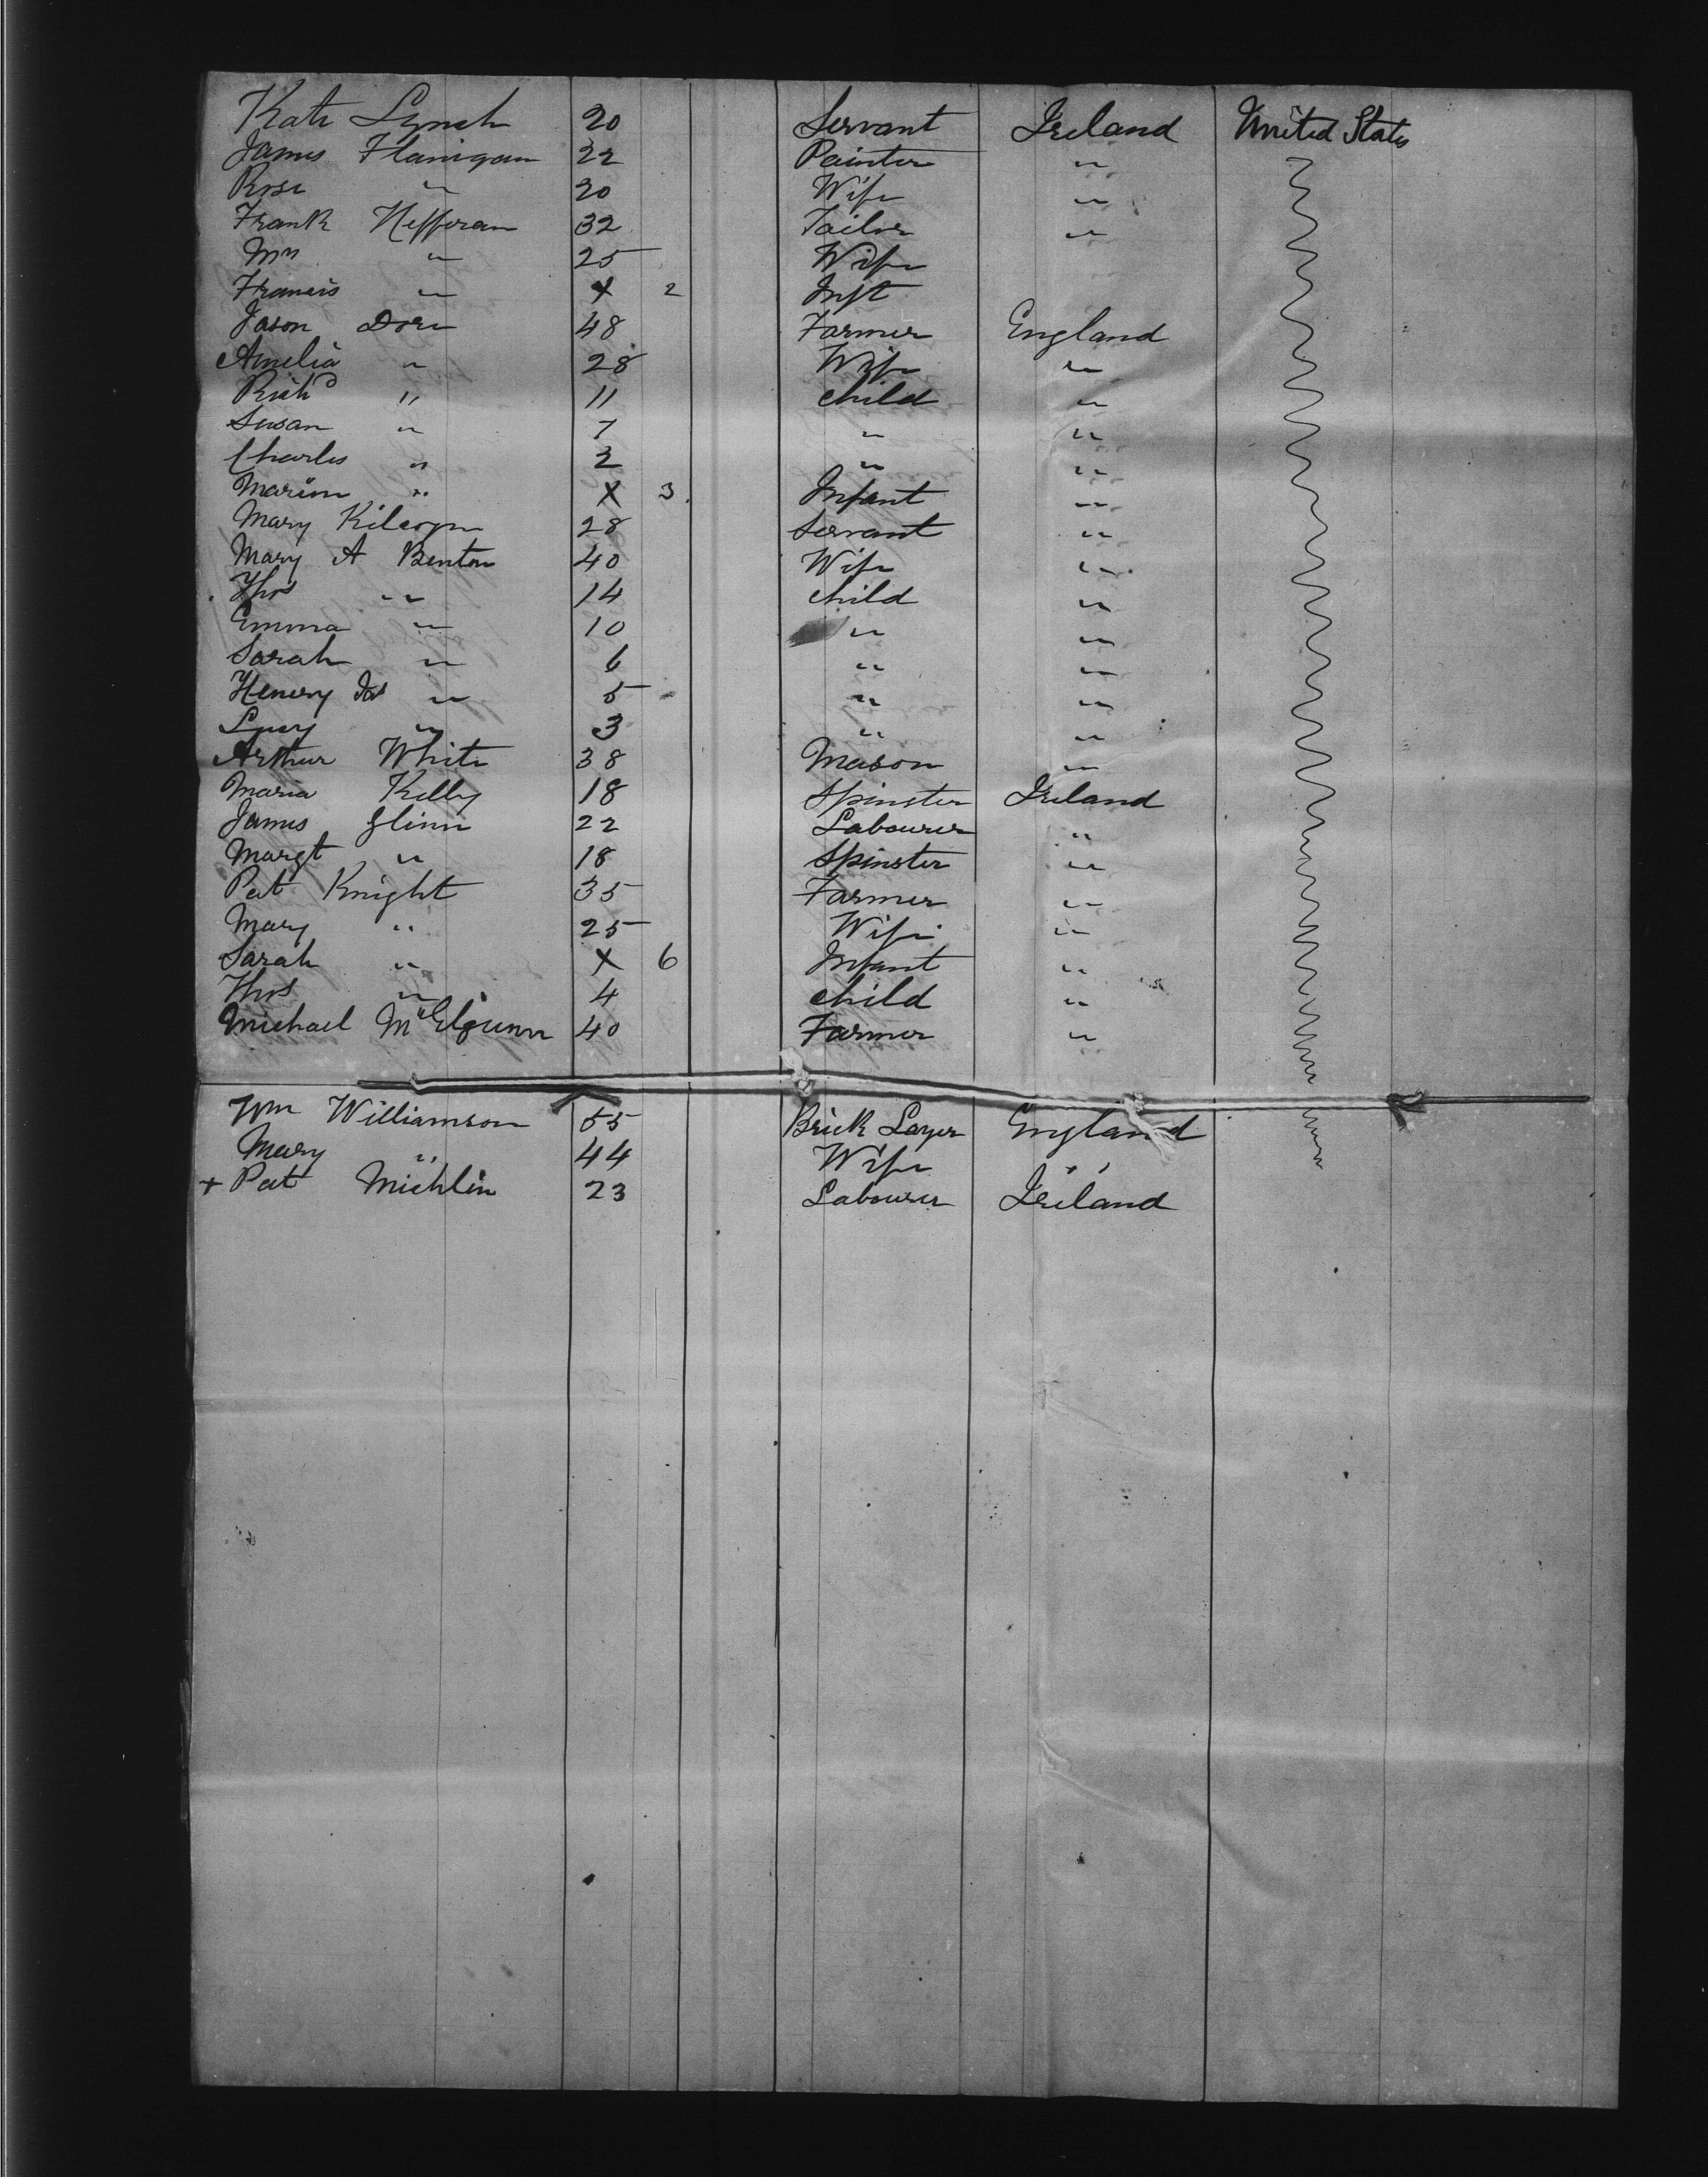 Kate Lynch 20 Servant Ireland United States
James Flanigan 22 Painter "
Rose " 20 Wife "
Frank Hefferan 32 Tailor "
Mrs " 25 Wife
Francis " X 2 Inft
Jason Dore 48 Farmer England
Amelia " 28 Wife "
Richd " 11 child "
Susan " 7 " "
Charles " 2 " "
Marion " X 3 Infant "
Mary 28 Servant "
Mary A Benton 40 Wife "
Thos " 14 child "
Emma " 10 " "
Sarah " 6 " "
Henery Jas " 5 " "
Lucy " 3 " "
Arthur White 38 Mason "
Maria Kelly 18 Spinster Ireland
James Glinn 22 Labourer "
Margt " 18 Spinster "
Pat Knight 35 Farmer "
Mary " 25 Wife "
Sarah " X 6 Infant "
Thos " 4 child "
Michael McElgunn 40 Farmer "
Wm Williamson 55 Brick Layer England
Mary " 44 Wife "
+ Pat Michlin 23 Labourer Ireland